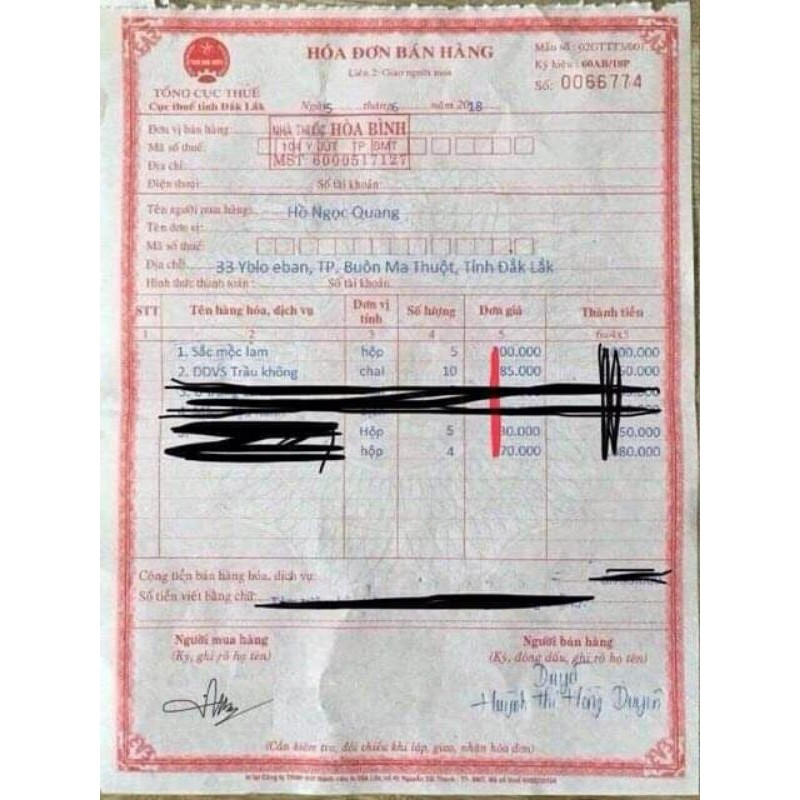 HÓA ĐƠN BÁN HÀNG
Liên 2: Giao người mua
Mẫu số: 02GTTT3/001
Ký hiệu: 60AB/18P
Số: 0066774
TỔNG CỤC THUẾ
Cục thuế tỉnh Đắk Lắk
Ngày 5 tháng 6 năm 2018
Đơn vị bán hàng NHÀ THUỐC HÒA BÌNH
Mã số thuế: 104 Y JÚT TP BMT
Địa chỉ: MST 6000517127
Điện thoại: Số tài khoản
Tên người mua hàng: Hồ Ngọc Quang
Tên đơn vị:
Mã số thuế
Địa chỉ: 33 Yblo eban, TP. Buôn Ma Thuột, Tỉnh Đắk Lắk
Hình thức thanh toán: Số tài khoản
STT Tên hàng hóa, dịch vụ Đơn vị tính Số lượng Đơn giá Thành tiền
1 2 3 4 5 6=4x5
1. Sắc mộc lam hộp 5 00.000 00.000
2. DDVS Trầu không chai 10 85.000 50.000
Hộp 5 30.000 50.000
hộp 4 70.000 80.000
Cộng tiền bán hàng hóa, dịch vụ:
Số tiền viết bằng chữ:
Người mua hàng
(Ký, ghi rõ họ tên)
Người bán hàng
(Ký, đóng dấu, ghi rõ họ tên)
Huỳnh Thị Hồng Duyên
(Cần kiểm tra, đối chiếu khi lập, giao, nhận hóa đơn)